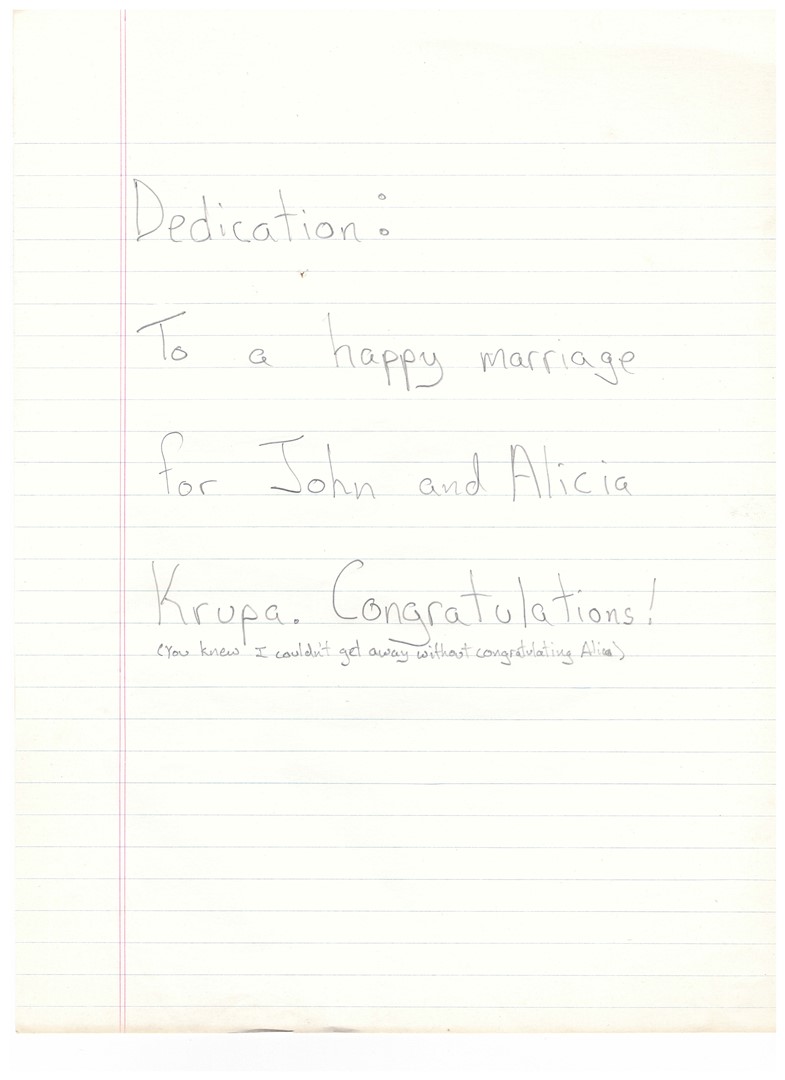 Dedication:
To a happy marriage
for John and Alicia
Krupa. Congratulations!
(You knew I couldn't get away without congratulating Alicia)